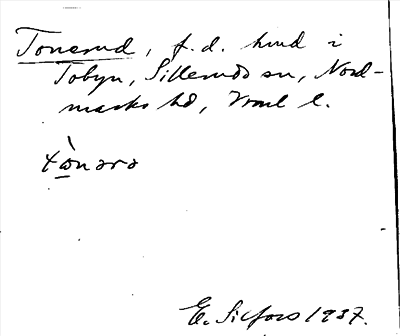 Tonerud, f.d. hmd i
Tobyn, Silleruds sn, Nord-
marks hd, Vrml l.
tὼnərə
E. Silfors 1937.